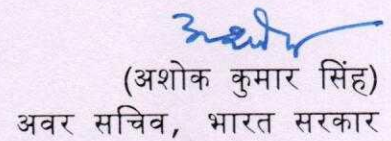 (अशोक कुमार सिंह)
अवर सचिव, भारत सरकार